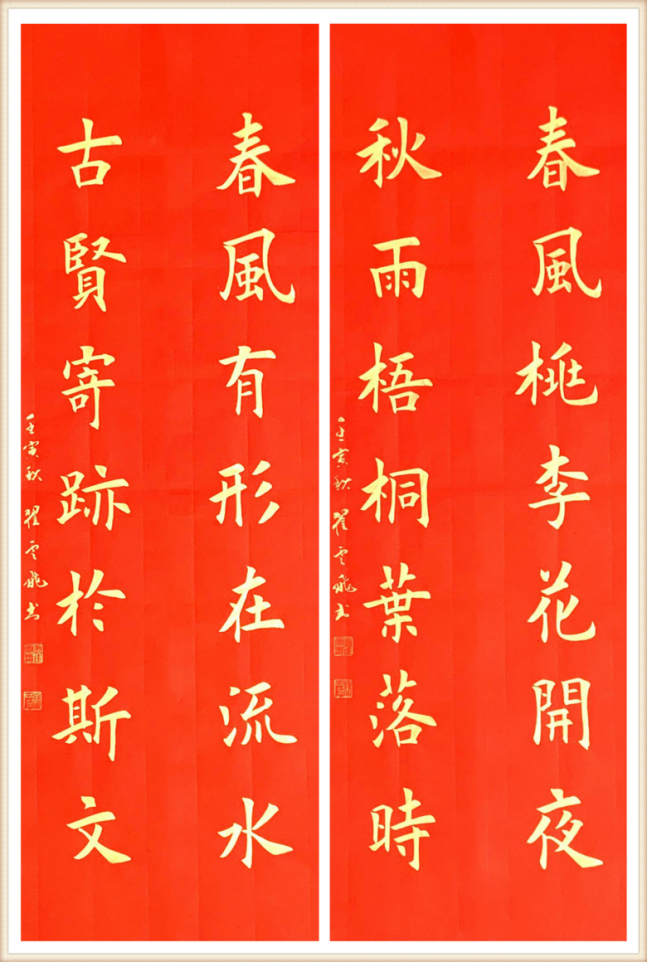 春風桃李花開夜
秋雨梧桐葉落時
壬寅秋 翟雲飛書
春風有形在流水
古賢寄跡於斯文
壬寅秋 翟雲飛書